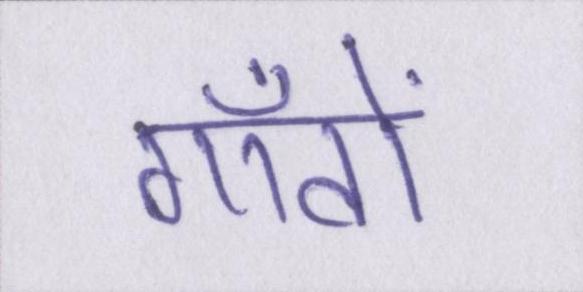 गाँवों